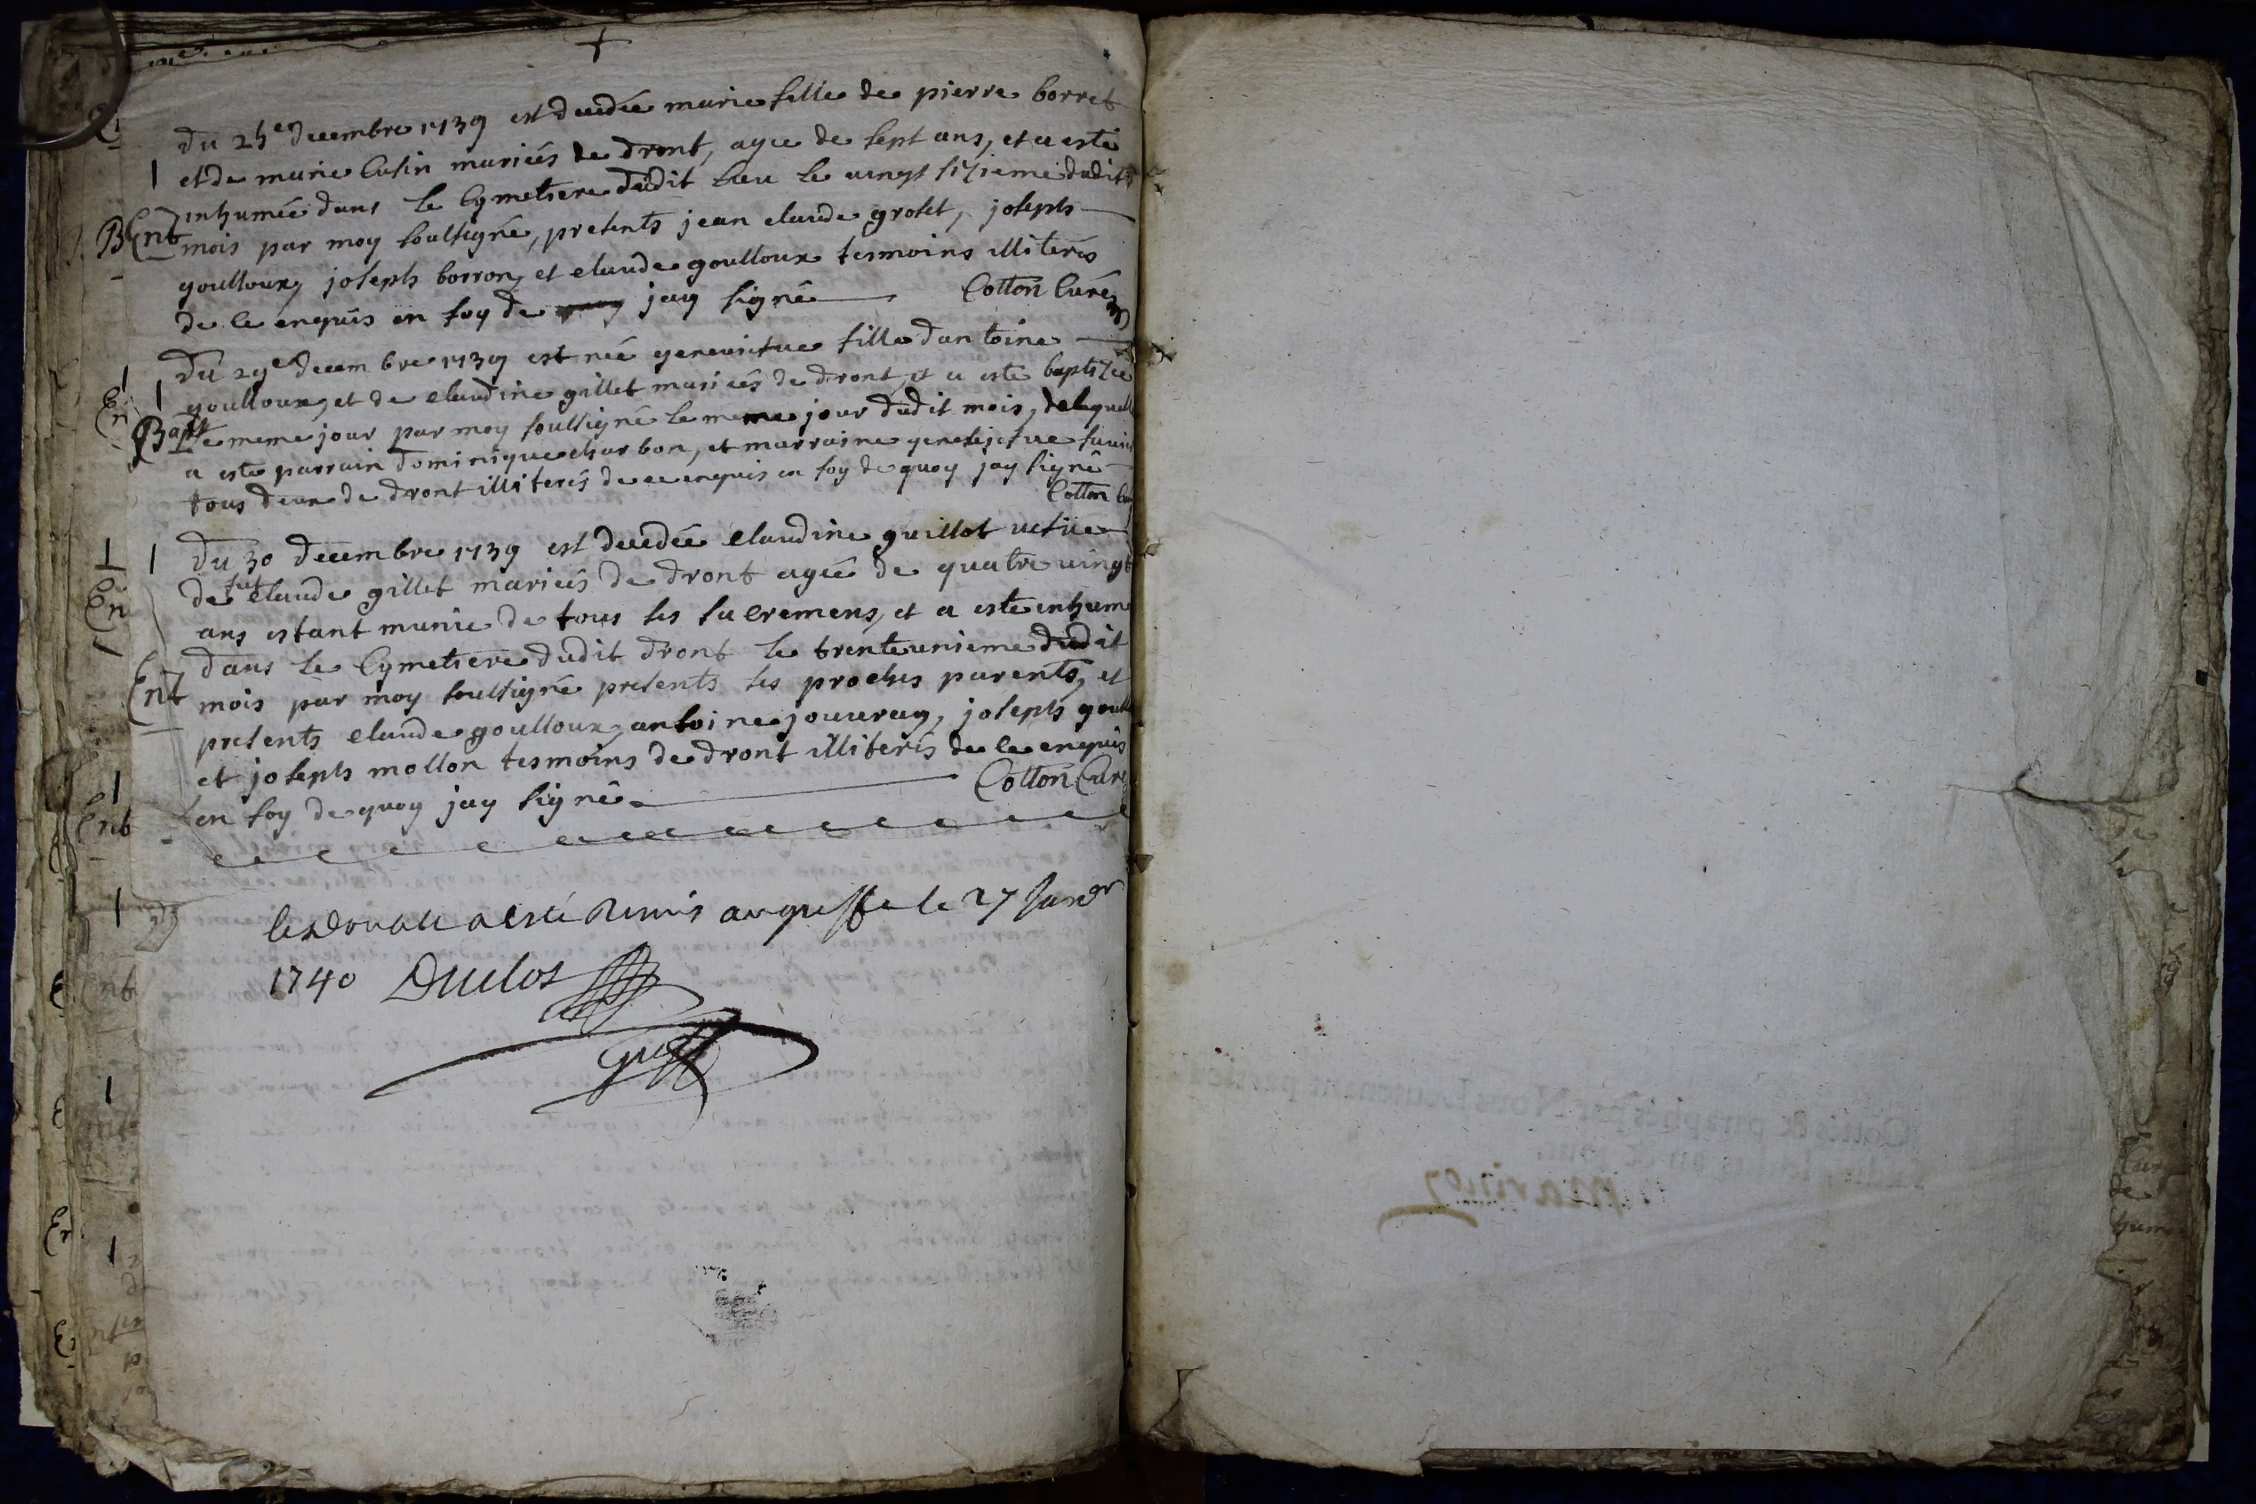 Du 25e decembre 1739 est decedée marie fille de pierre borret
et de marie Cusin mariés de dront, agee de sept ans, et a esté
inhumée dans le Cymetiere dudit lieu le vingt sizieme dudit
mois par moy soussigné, presents jean claude groset, joseph
goulloux, joseph borron, et claude goulloux tesmoins illiterés
de ce enquis en foy de quoy jay signé Cotton Curé
Du 29e decembre 1739 est née genevieve fille dantoine
goulloux, et de claudine gillet mariés de dront, et a esté baptizée
le meme jour par moy soussigné le meme jour dudit mois, delaquelle
a esté parrain dominique charbon, et marraine genevieve
tous deux de dront illiterés de ce enquis en foy de quoy jay signé
Cotton
Du 30 decembre 1739 est decedée claudine guillot vefve
de fut claude gillet mariés de dront agée de quatre vingt
ans estant munie de tous les sacremens, et a esté inhum
dans le Cymetiere dudit dront le trente unieme dudit
mois par moy soussigné presents les proches parents, et
presents claude goulloux, antoine jouveray, joseph goull
et joseph mollon tesmoins de dront illiterés de ce enquis
en foy de quoy jay signé Cotton Curé
le double a esté Remis au greffe le 27 Janer
1740 Duclos
greff
1
Ent
1
Bapt
1
Ent
marinet